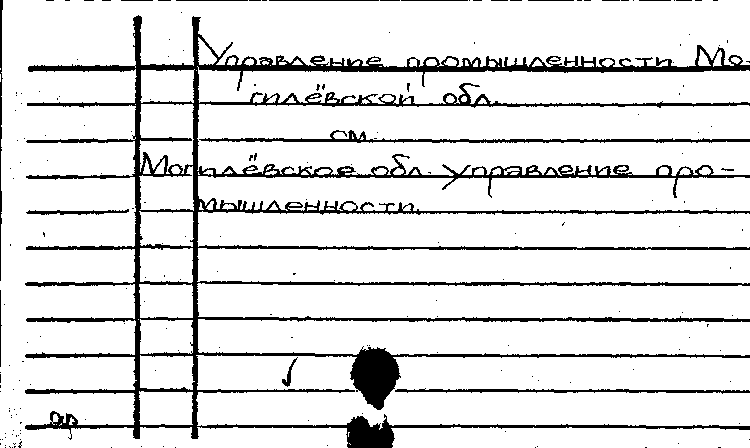 Управление промышленности Мо-
гилёвской обл.
см.
Могилёвское обл. управление про-
мышленности.